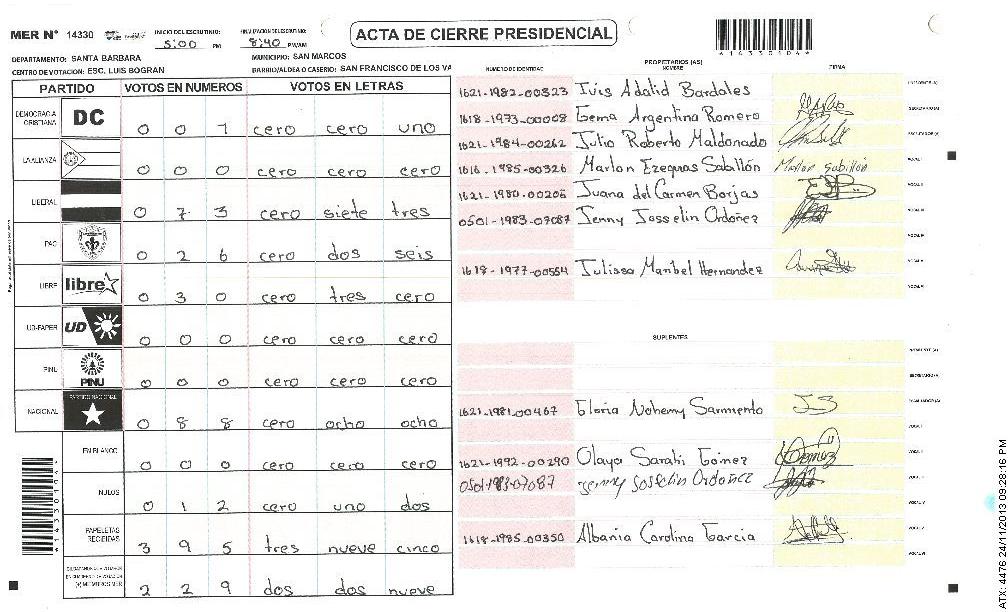 MER Nº 14330
INICIO DEL ESCRUTINIO: 5:00 PM
FINALIZACION DEL ESCRUTINIO: 8:40 PM/AM
ACTA DE CIERRE PRESIDENCIAL
4143301044
DEPARTAMENTO: SANTA BARBARA
MUNICIPIO: SAN MARCOS
CENTRO DE VOTACION: ESC. LUIS BOGRAN
BARRIO/ALDEA O CASERIO: SAN FRANCISCO DE LOS VA
PARTIDO VOTOS EN NUMEROS VOTOS EN LETRAS
DEMOCRACIA CRISTIANA DC 0 0 1 cero cero uno
LA ALIANZA 0 0 0 cero cero cero
LIBERAL 0 7 3 cero siete tres
PAC 0 2 6 cero dos seis
LIBRE libre 0 3 0 cero tres cero
UD-FAPER UD 0 0 0 cero cero cero
PINU PINU 0 0 0 cero cero cero
NACIONAL PARTIDO NACIONAL 0 8 8 cero ocho ocho
EN BLANCO 0 0 0 cero cero cero
NULOS 0 1 2 cero uno dos
PAPELETAS RECIBIDAS 3 9 5 tres nueve cinco
(+) MIEMBROS MER 2 2 9 dos dos nueve
NUMERO DE IDENTIDAD PROPIETARIOS (AS) NOMBRE FIRMA
1621-1982-00323 Ivis Adalid Bardales
1618-1973-00008 Gema Argentina Romero
1621-1984-00262 Julio Roberto Maldonado
1616-1985-00326 Marlon Ezequias Sabillón Marlon Sabillón
1621-1980-00206 Juana del Carmen Borjas
0501-1983-07087 Jenny Josselin Ordoñez
1618-1977-00554 Julissa Maribel Hernandez
SUPLENTES
1621-1981-00467 Gloria Nohemy Sarmiento
1621-1992-00290 Olaya Sarahi Gómez
0501-1983-07087 Jenny Josselin Ordoñez
1618-1985-00350 Albania Carolina Garcia
ATX: 4476 24/11/2013 09:28:16 PM